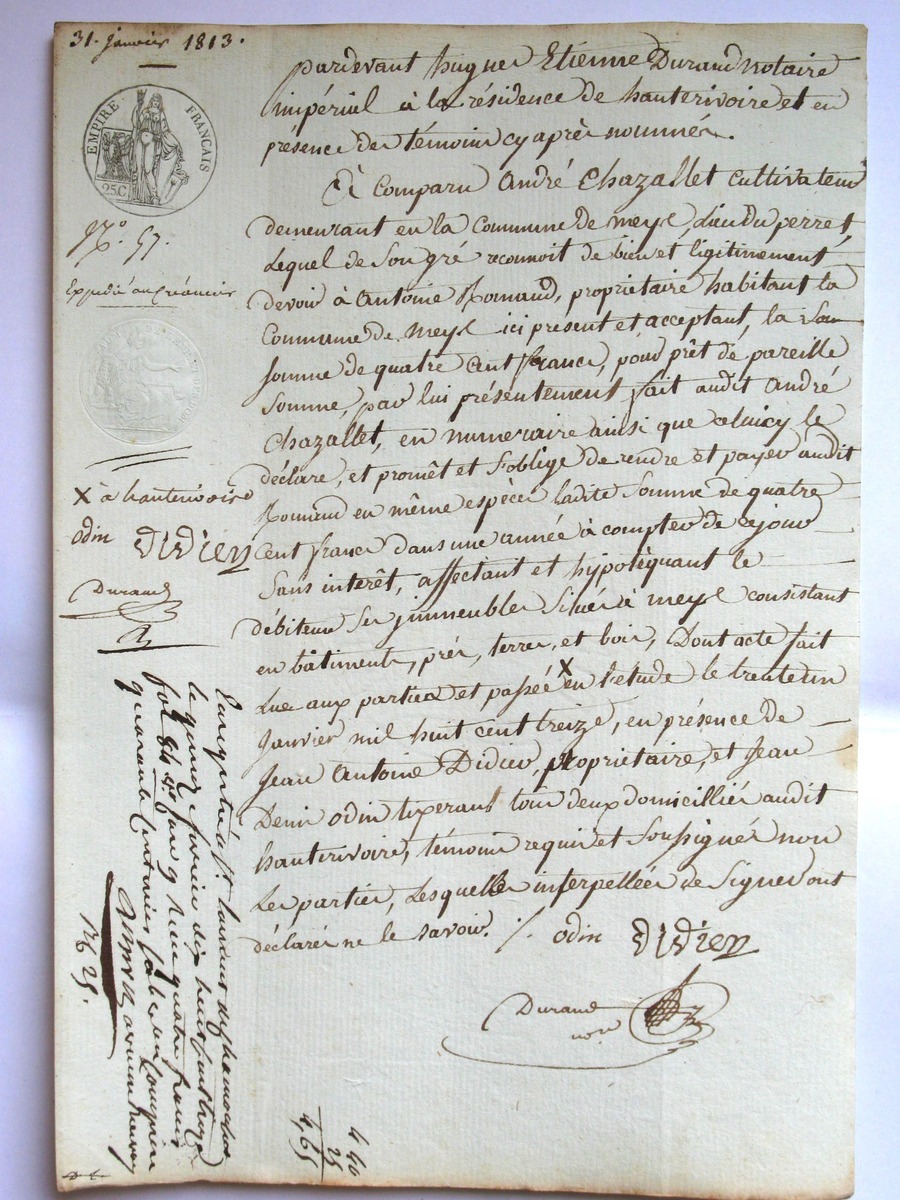 31. janvier 1813.
EMPIRE FRANÇAIS
25C.
N.° 57.
Expédié au Créancier
X à hauterivoire
odin Didier
Durand
pardevant hugues Etienne Durand notaire
impérial à la résidence de hauterivoire et en
présence des témoins cy après nommés.
A Comparu André Chazallet Cultivateur
demeurant en la Commune de meys, Lieu du perret,
Lequel de Son gré reconnoit de bien et légitimement
devoir à Antoine Romand, propriétaire habitant la
Commune de meys ici present et acceptant, la So
somme de quatre Cent francs, pour prêt de pareille
Somme, par lui présentement fait audit André
Chazallet, en numeraire ainsi que celuicy le
déclare, et promêt et S'oblige de rendre et payer audit
Romand en même espèces ladite Somme de quatre
Cent francs dans une année à compter de cejour
Sans interêt, affectant et hypotèquant le
débiteur Ses jmmeubles Situés à meys consistant
en bâtiments, prés, terres, et bois, Dont acte fait
Lue aux parties et passée X en l'étude le trente un
Janvier mil huit Cent treize, en présence de
Jean Antoine Didier, propriétaire, et Jean
Denis odin tixerans tous deux domicilliés audit
hauterivoire, témoins requis et Soussignés non
Les parties, Lesquelles interpellées de Signer ont
déclarés ne le savoir. /. odin Didier
Durand
no.re
Enregistré à St. laurent de chamousset
le quinze février dix huit cent treize
fol. 84 Reçu quatre francs
quarante centimes
4 40
25
4,65